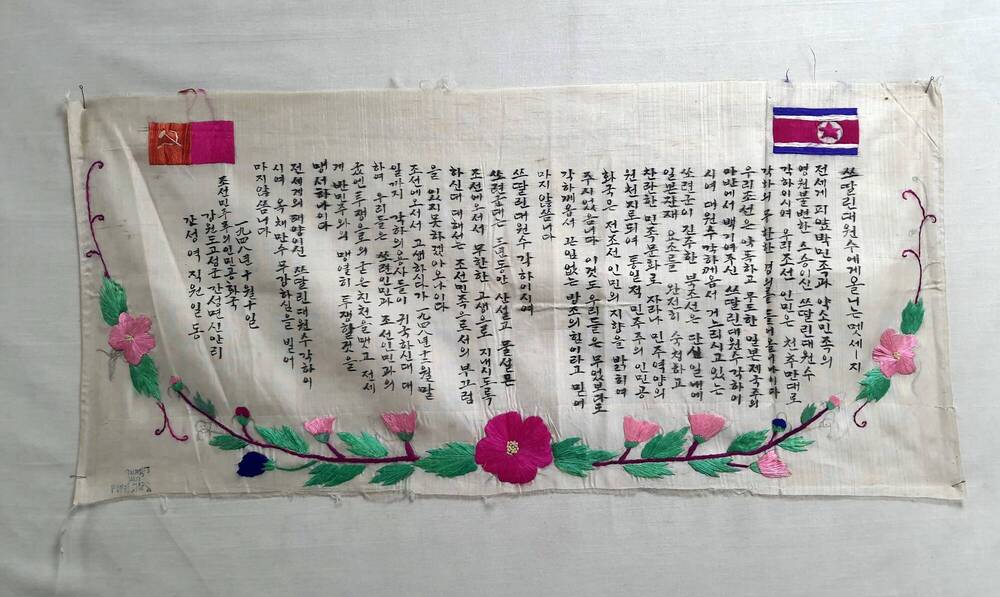 쓰딸린대원수에게올니는멧세—지
전세계 피압박민족과 약소민족의
영원불변한 스승이신 쓰딸린대원수
각하이시여 우리조선 인민은 천추만대로
각하의 무한한
우리조선은 악독하고 무도한 일본제국주의
마반에서 쓰딸린대원수각하이
시며 대원수각하께옵서 거느리시고있는
쏘련군이 진주한 북조선은 단시일내에
일본잔재 요소를 완전히 숙청하고
찬란한 민족문화로 자라나 민주역량의
원천지로되여 통일적 민주주의 인민공
화국은 전조선 인민의 지향을 밝히여
주시였읍니다 이것도우리들은 무엇보다도
각하께옵서 끈임없는 방조의힘이라고 믿어
마지않씀니다
쓰딸린대원수 각하이시여
쏘련군대는 三년동안 산설고 물설흔
조선에오셔서 무한하 고생으로 지내시도록
하신데 대해서는 조선민족으로서의 부끄럼
을 잊지못하겠아오니다
조선에오셔서 고생하시다가 一九四八年十二월말
일까지 각하의용사들이 귀국하신데 대
하여 우리들은 쏘련인민과 조선인민과의
굳은친선을맺고 전세
게 반민주와의 맹열히 투쟁할것을
맹서하나이다
전세계의태양이신 쓰딸린대원수각하이
시여 옥체만수 무강하심을 빌어
마지않씀니다
一九四八年十월十일
조선민주주의인민공화국
강원도고성군 간성면신안리
간성여 직원일동